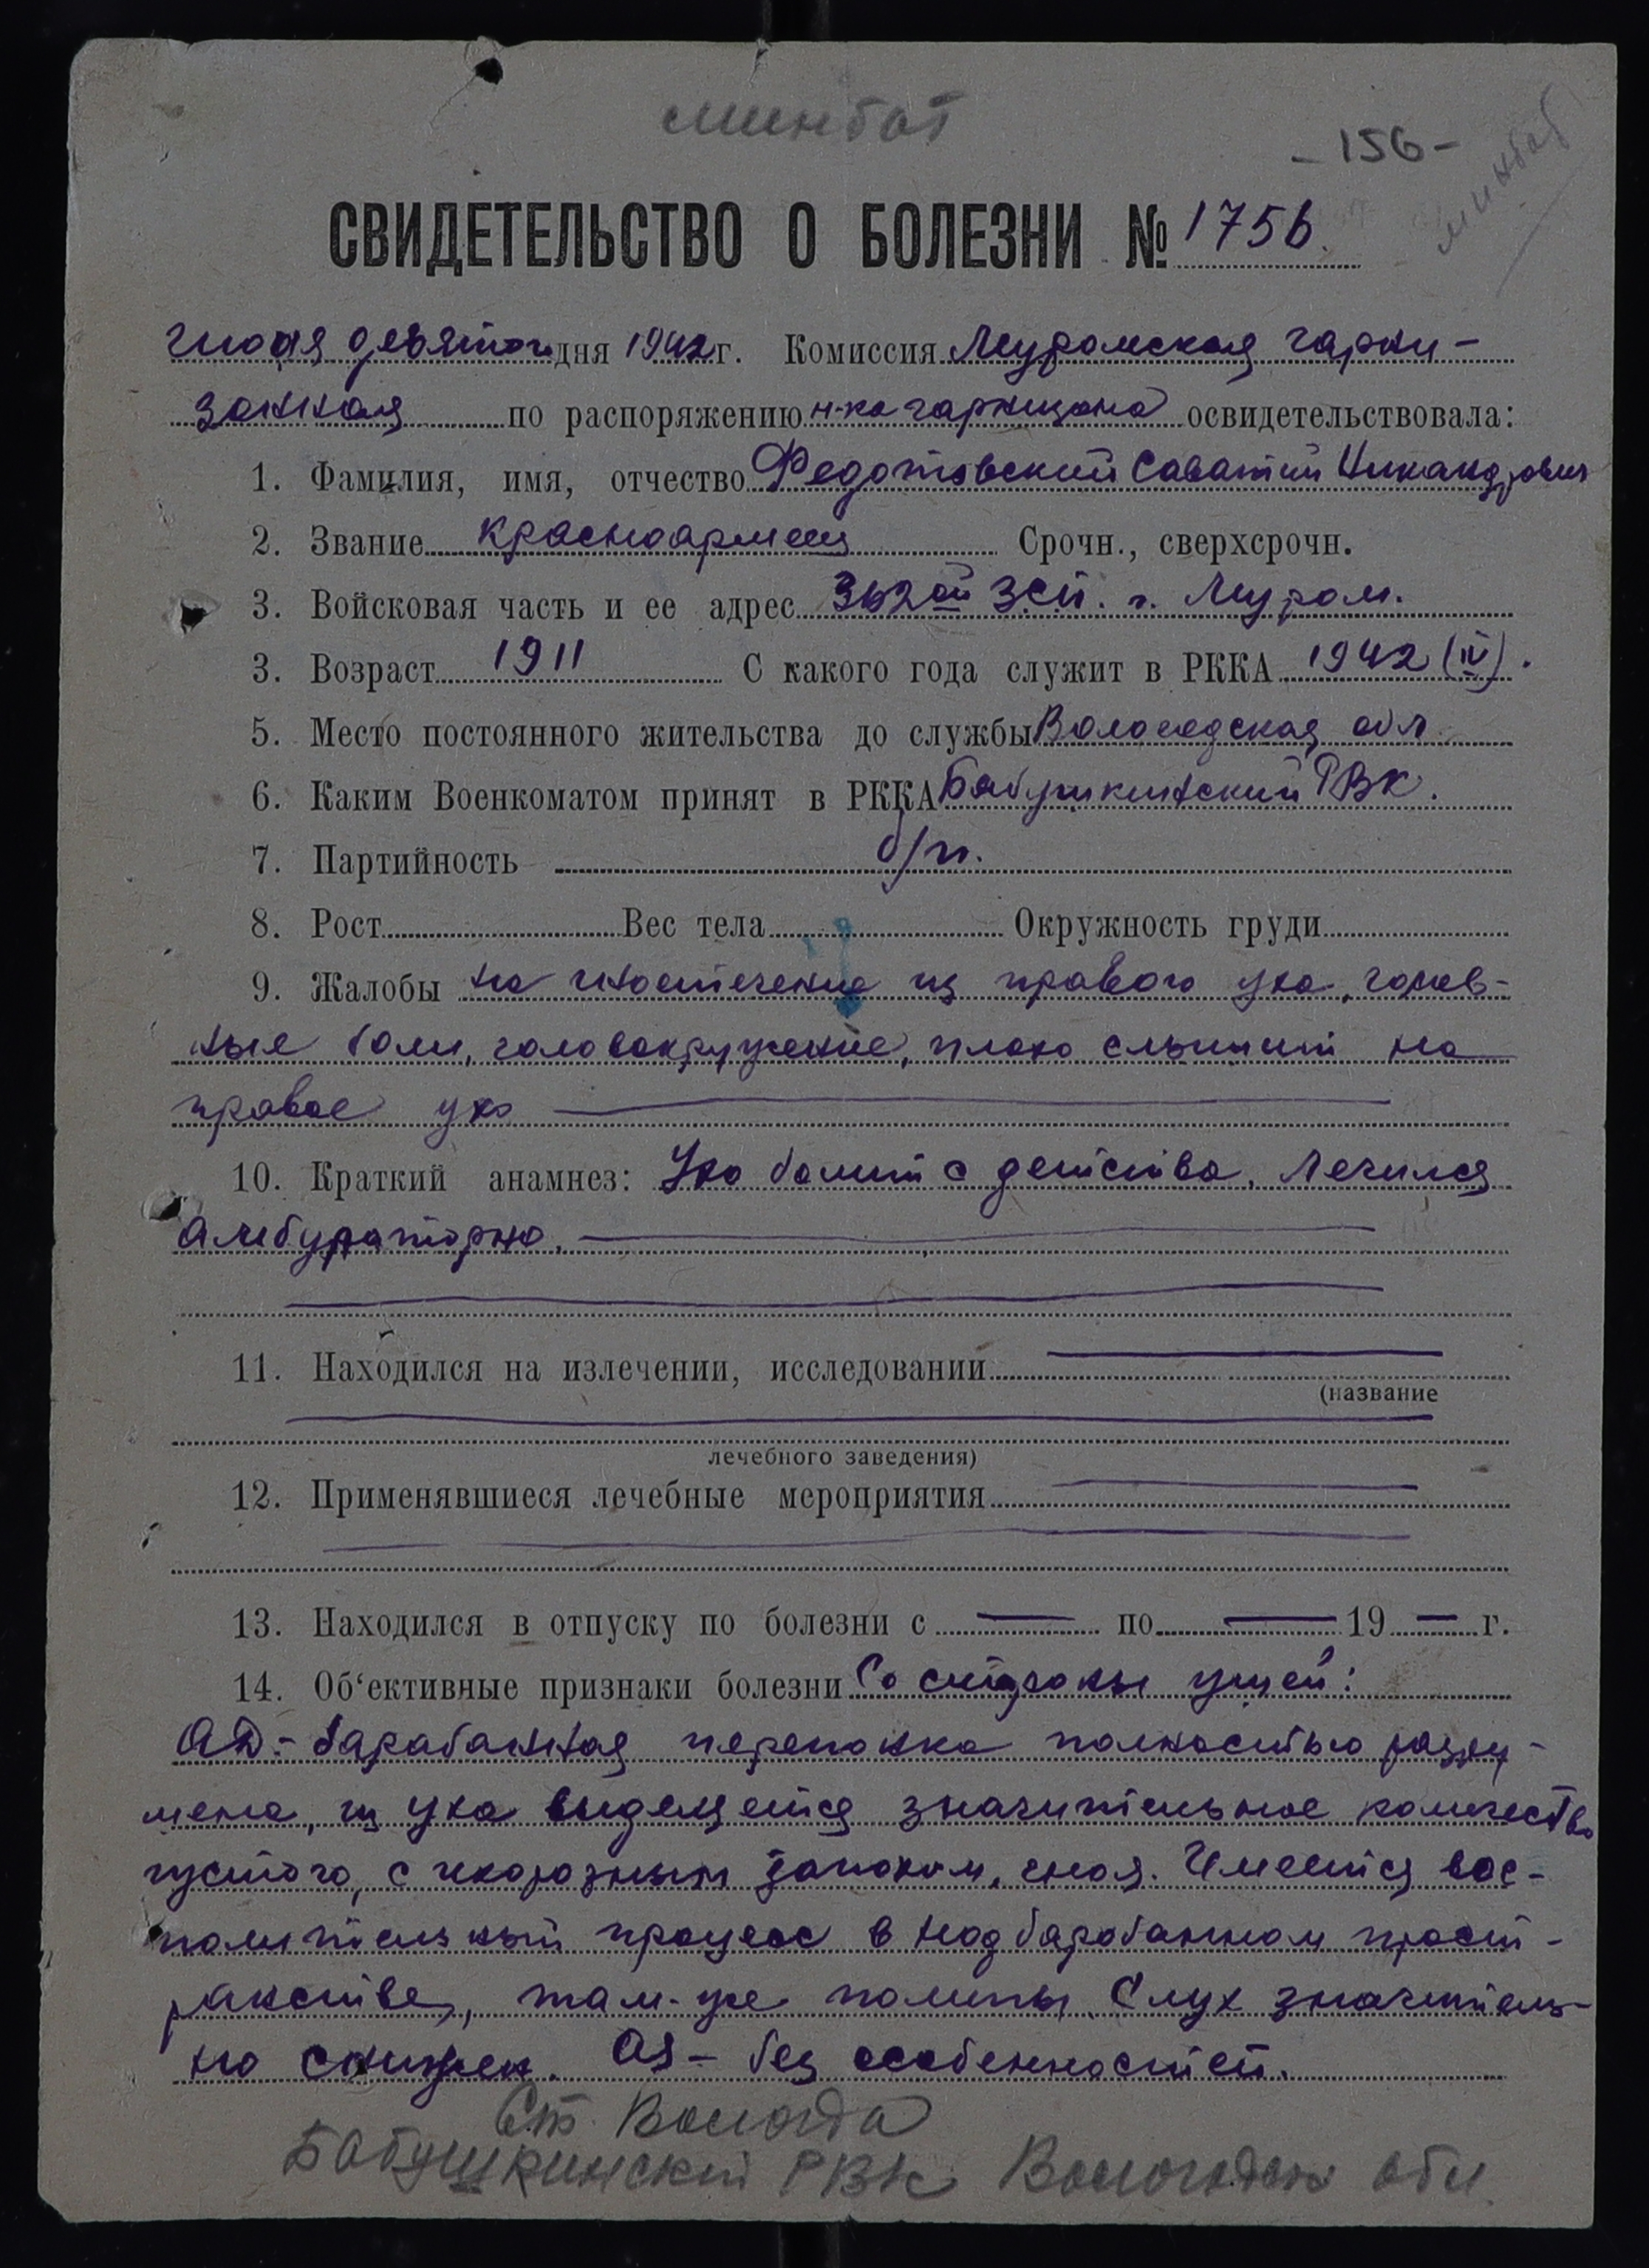 минбат
- 156 -
минбат
СВИДЕТЕЛЬСТВО О БОЛЕЗНИ № 1756.
девятого дня 1942 г. Комиссия Муромская гарни-
зонная по распоряжению н-ка гарнизона освидетельствовала:
1. Фамилия, имя, отчество Федотовский Саватий Никандрович
2. Звание красноармеец Срочн., сверхсрочн.
3. Войсковая часть и ее адрес 362ой ЗСП. г. Муром.
3. Возраст 1911 С какого года служит в РККА 1942 (IV).
5. Место постоянного жительства до службы Вологодская обл
6. Каким Военкоматом принят в РККА Бабушкинский РВК.
7. Партийность б/п.
8. Рост Вес тела Окружность груди
9. Жалобы на гноетечение из правого уха, голов-
ные боли, головокружение, плохо слышит на
правое ухо
10. Краткий анамнез: Ухо болит с детства. Лечился
амбулаторно.
11. Находился на излечении, исследовании
(название
лечебного заведения)
12. Применявшиеся лечебные мероприятия
13. Находился в отпуску по болезни с — по — 19 — г.
14. Об‘ективные признаки болезни Со стороны ушей:
АД - барабанная перепонка полностью разру-
шена, из уха выделяется значительное количество
густого, с ихорозным запахом, гноя. Имеется вос-
палительный процесс в надбарабанном прост-
ранстве, там-же полипы. Слух значитель-
но снижен. AS - без особенностей.
Ст. Вологда
Бабушкинский РВК Вологодск обл.